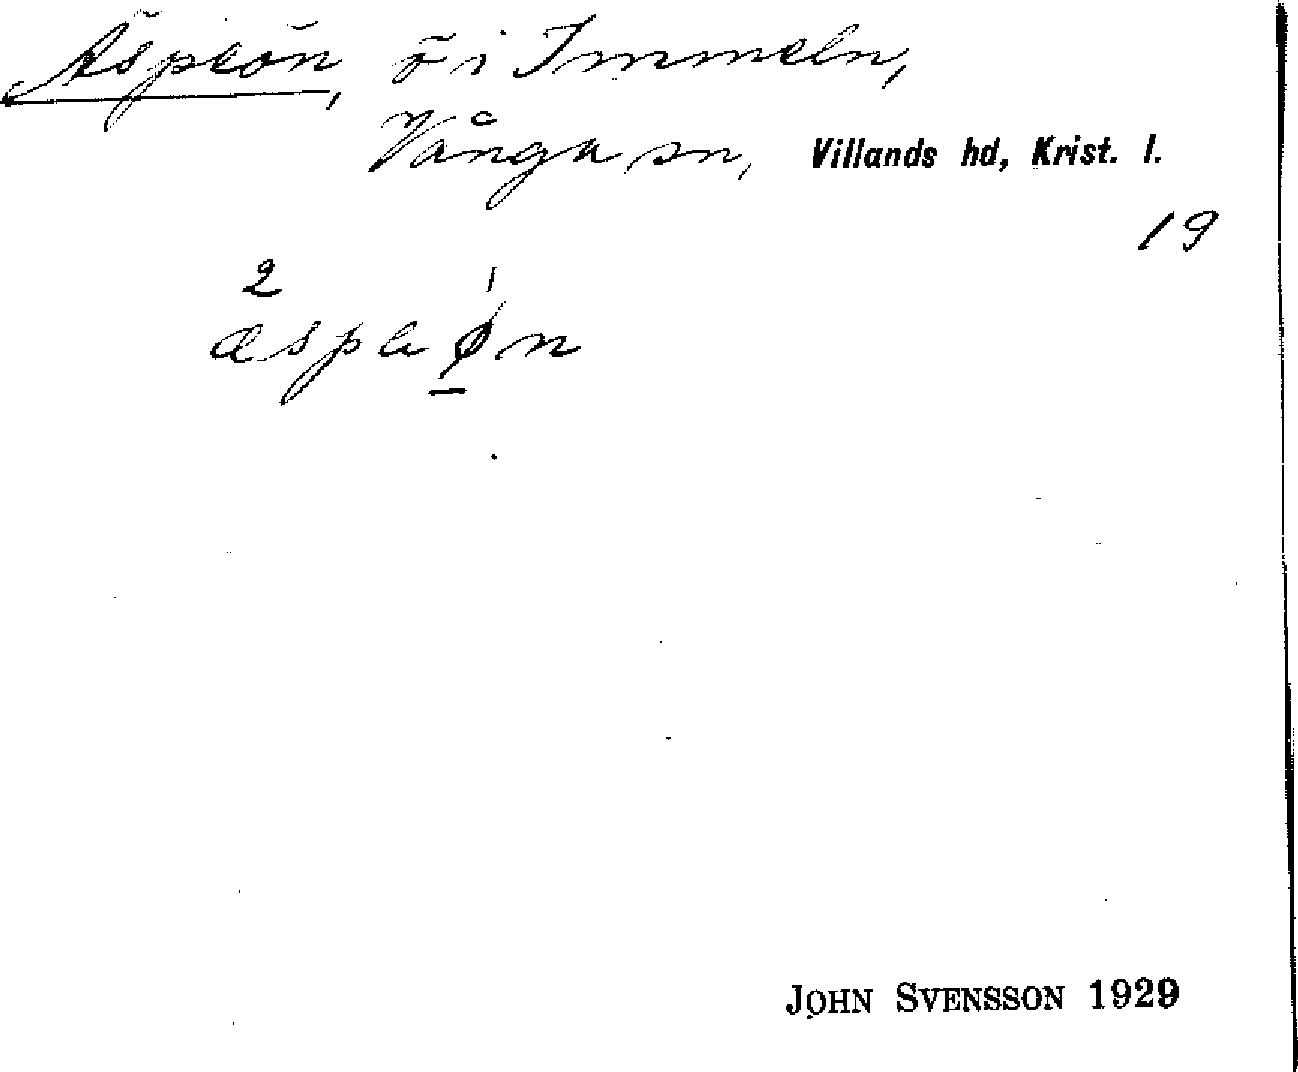 Äspeön, ö i Immeln,
Vånga sn, Villands hd, Krist. l.
19
2 1
æspeøn
JOHN SVENSSON 1929